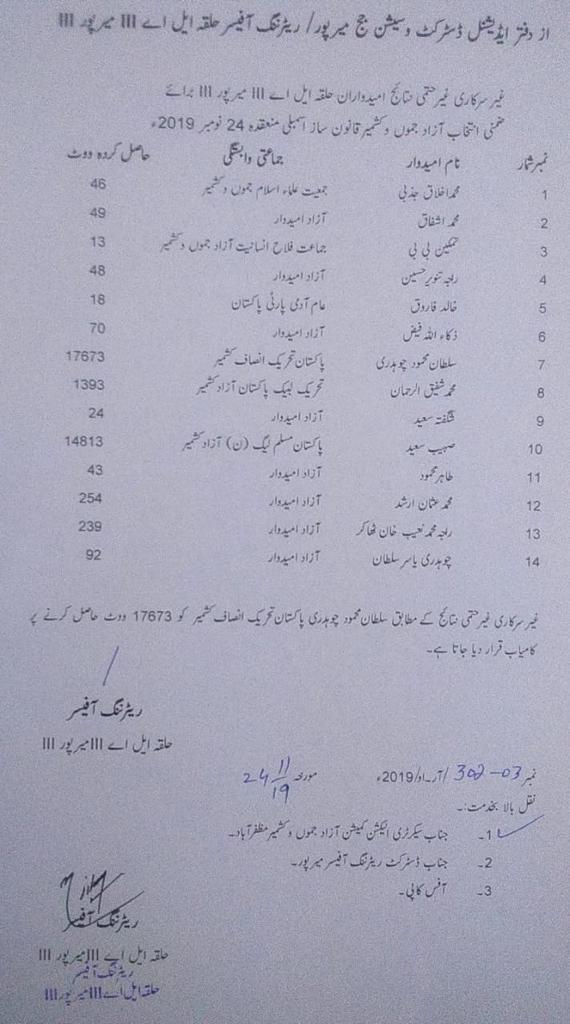 از دفتر ایڈیشنل ڈسٹرکٹ و سیشن جج میرپور/ ریٹرننگ آفیسر حلقہ ایل اے III میرپور III
غیر سرکاری غیر حتمی نتائج امیدواران حلقہ ایل اے III میرپور III برائے
ضمنی انتخاب آزاد جموں و کشمیر قانون ساز اسمبلی منعقدہ 24 نومبر 2019ء
نمبر شمار نام امیدوار جماعتی وابستگی حاصل کردہ ووٹ
1 محمد اخلاق جذبی جمعیت علماء اسلام جموں و کشمیر 46
2 محمد اشفاق آزاد امیدوار 49
3 تمکین بی بی جماعت فلاح انسانیت آزاد جموں و کشمیر 13
4 راجہ تنویر حسین آزاد امیدوار 48
5 خالد فاروق عام آدمی پارٹی پاکستان 18
6 ذکاء اللہ فیض آزاد امیدوار 70
7 سلطان محمود چوہدری پاکستان تحریک انصاف کشمیر 17673
8 محمد شفیق الرحمان تحریک لبیک پاکستان آزاد کشمیر 1393
9 شگفتہ سعید آزاد امیدوار 24
10 صہیب سعید پاکستان مسلم لیگ (ن) آزاد کشمیر 14813
11 طاہر محمود آزاد امیدوار 43
12 محمد عثمان ارشد آزاد امیدوار 254
13 راجہ محمد نعیب خان ٹھاکر آزاد امیدوار 239
14 چوہدری یاسر سلطان آزاد امیدوار 92
غیر سرکاری غیر حتمی نتائج کے مطابق سلطان محمود چوہدری پاکستان تحریک انصاف کشمیر کو 17673 ووٹ حاصل کرنے پر
کامیاب قرار دیا جاتا ہے۔
ریٹرننگ آفیسر
حلقہ ایل اے III میرپور III
نمبر 302-03 /آر۔او/2019ء مورخہ 24/11/19
نقل بالا بخدمت:۔
1۔ جناب سیکرٹری الیکشن کمیشن آزاد جموں و کشمیر مظفرآباد۔
2۔ جناب ڈسٹرکٹ ریٹرننگ آفیسر میرپور۔
3۔ آفس کاپی۔
ریٹرننگ آفیسر
حلقہ ایل اے III میرپور III
ریٹرننگ آفیسر
حلقہ ایل اے III میرپور III